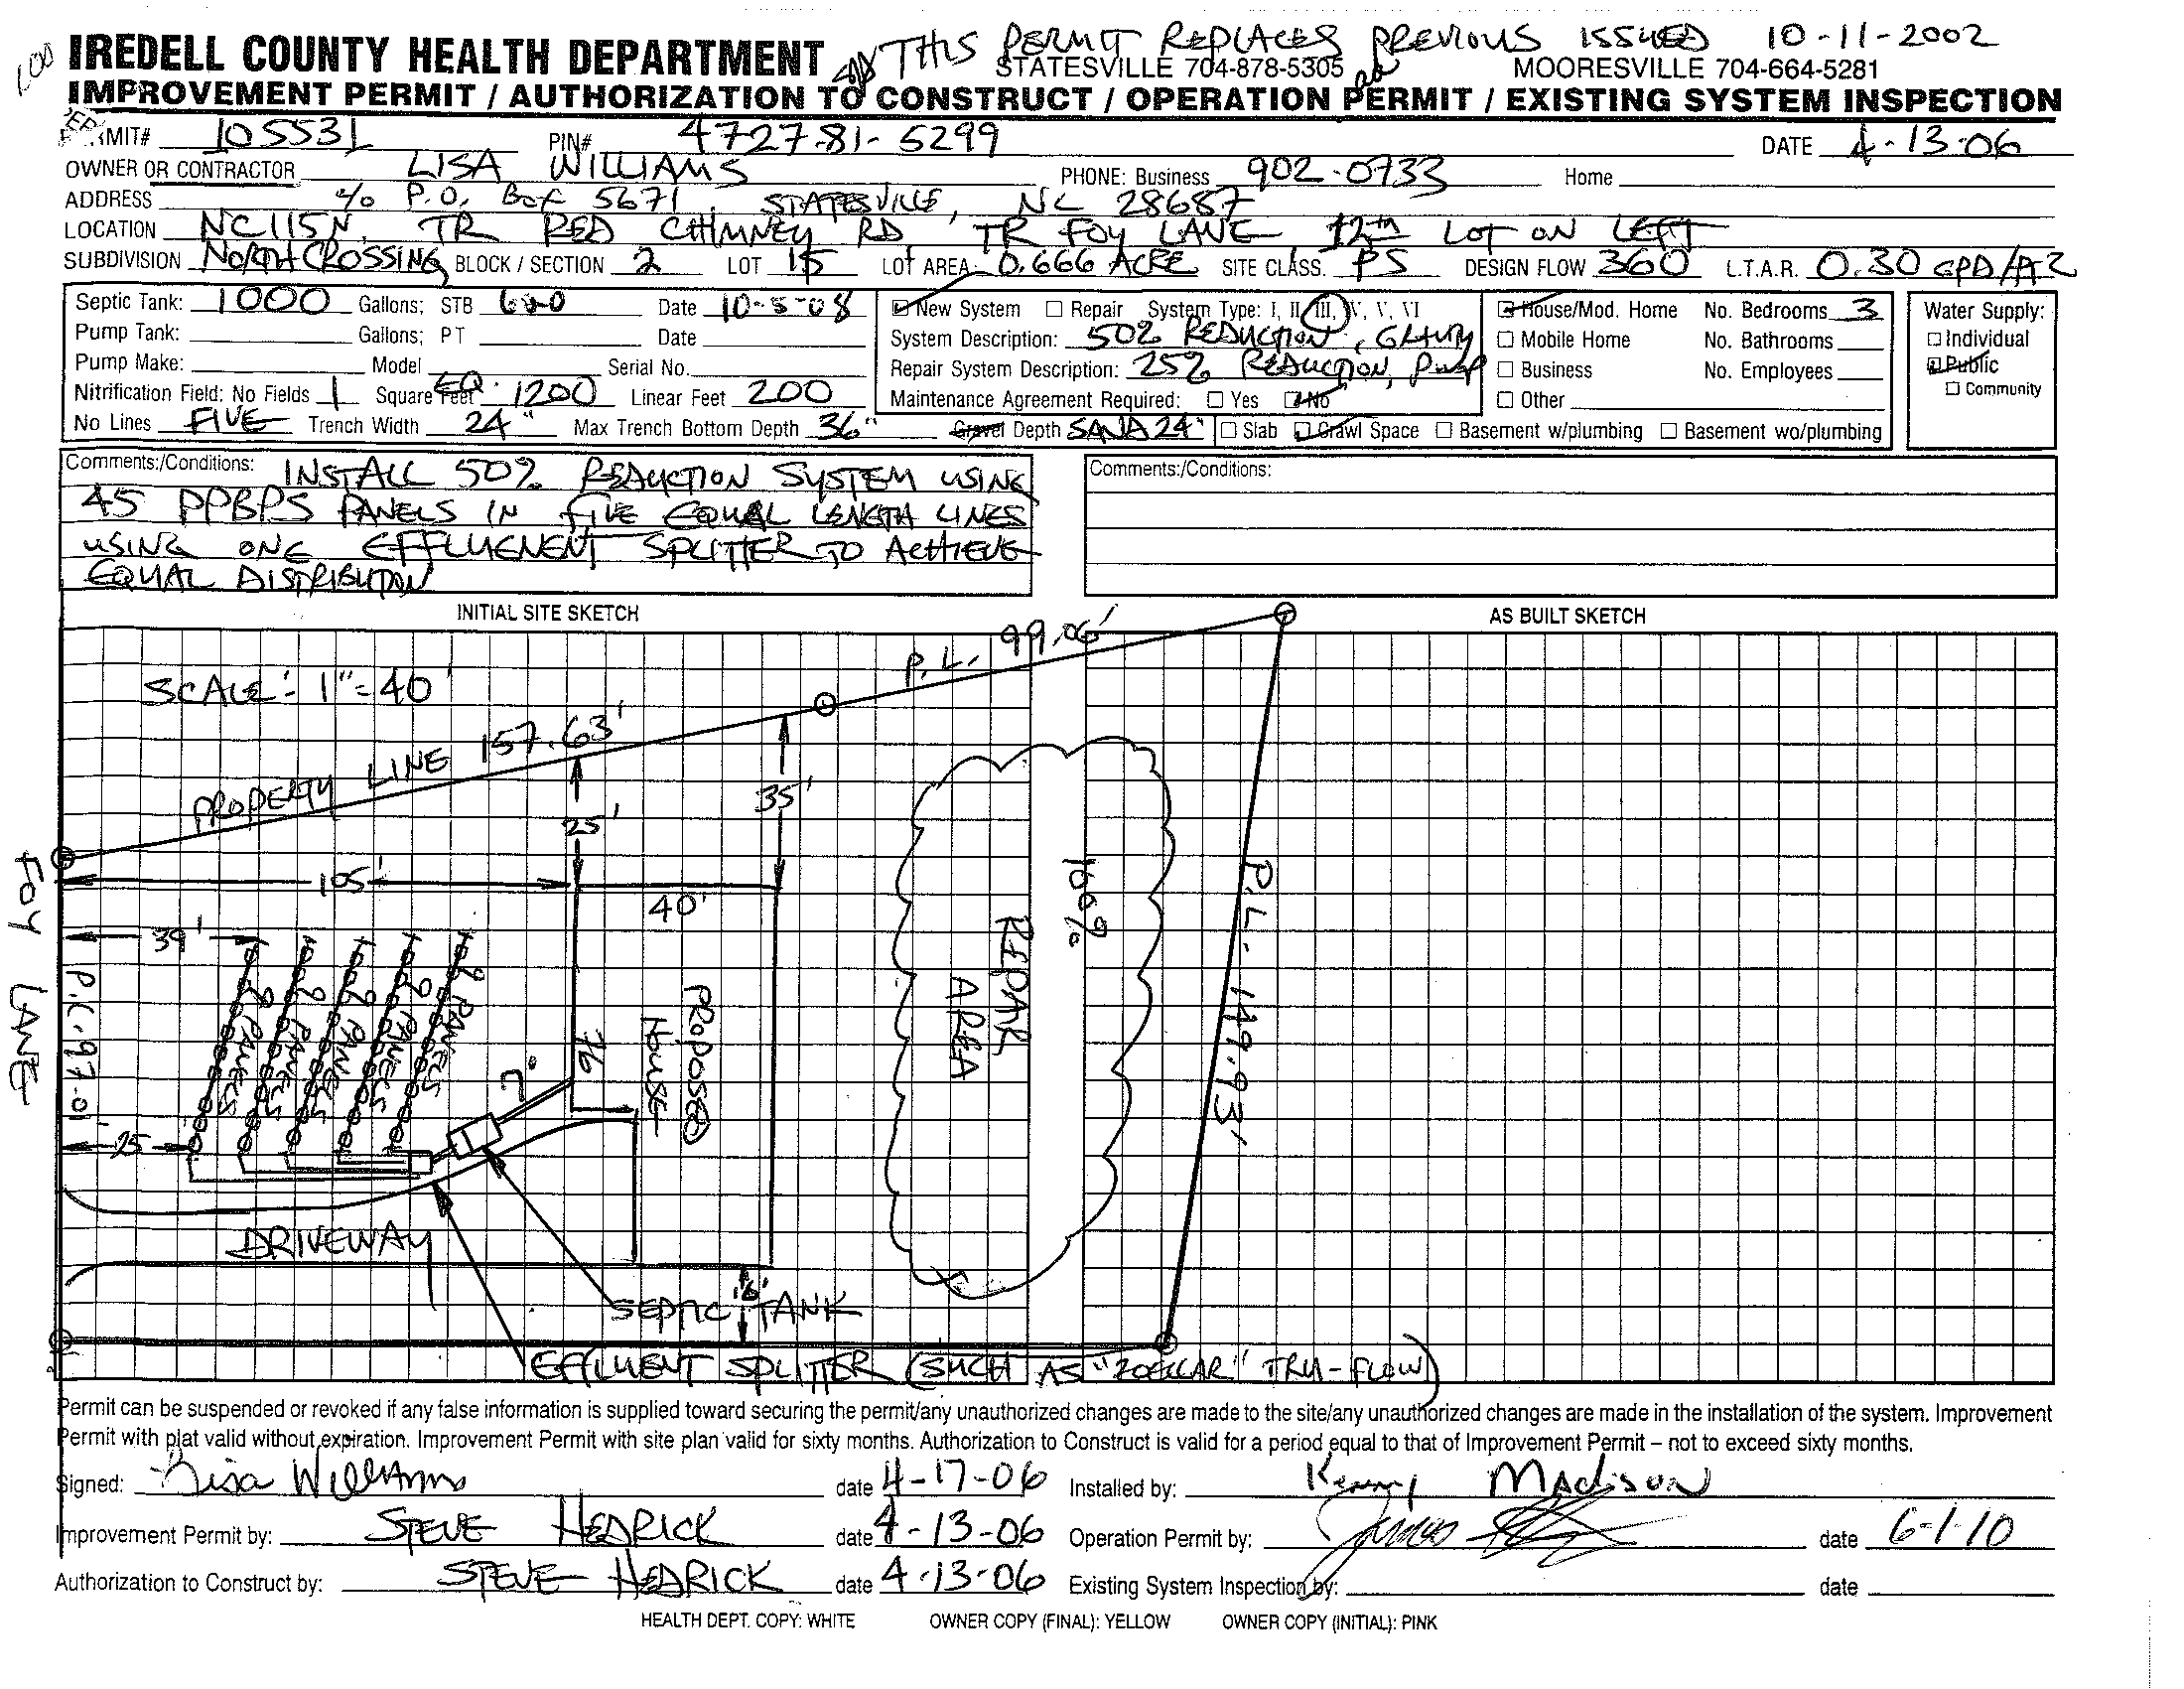 THIS PERMIT REPLACES PREVIOUS ISSUED 10-11-2002
IREDELL COUNTY HEALTH DEPARTMENT STATESVILLE 704-878-5305 MOORESVILLE 704-664-5281
IMPROVEMENT PERMIT / AUTHORIZATION TO CONSTRUCT / OPERATION PERMIT / EXISTING SYSTEM INSPECTION
PERMIT# 105531 PIN# 4727-81-5299 DATE 4-13-06
OWNER OR CONTRACTOR LISA WILLIAMS PHONE: Business 902-0733 Home
ADDRESS % P.O. Box 5671 STATESVILLE, NC 28687
LOCATION NC 115 N. TR RED CHIMNEY RD TR FOY LANE 12th LOT ON LEFT
SUBDIVISION NORTH CROSSING BLOCK / SECTION 2 LOT 15 LOT AREA 0.666 ACRE SITE CLASS. PS DESIGN FLOW 360 L.T.A.R. 0.30 GPD/
Septic Tank: 1000 Gallons; STB Date 10-5-08
Pump Tank: Gallons; PT Date
Pump Make: Model Serial No.
Nitrification Field: No Fields 1 Square Feet EQ. 1200 Linear Feet 200
No Lines FIVE Trench Width 24" Max Trench Bottom Depth 36" Gravel Depth SAND 24"
New System Repair System Type: I, II, III, IV, V, VI
System Description: 50% REDUCTION, GRAVITY
Repair System Description: 25% REDUCTION, PUMP
Maintenance Agreement Required: Yes No
House/Mod. Home No. Bedrooms 3
Mobile Home No. Bathrooms
Business No. Employees
Other
Slab Crawl Space Basement w/plumbing Basement wo/plumbing
Water Supply:
Individual
Public
Community
Comments:/Conditions: INSTALL 50% REDUCTION SYSTEM USING
45 PPBPS PANELS IN FIVE EQUAL LENGTH LINES
USING ONE EFFLUENENT SPLITTER TO ACHIEVE
EQUAL DISTRIBUTON
Comments:/Conditions:
INITIAL SITE SKETCH
AS BUILT SKETCH
SCALE: 1"=40'
PROPERTY LINE 157.63'
P.L. 99.06'
25'
35'
105'
40'
39'
FOY LANE
P.L. 97.01
9 PANELS
9 PANELS
9 PANELS
9 PANELS
9 PANELS
7'
76
PROPOSED
HOUSE
100%
REPAIR
AREA
P.L. 149.93'
25
DRIVEWAY
16'
SEPTIC TANK
EFFLUENT SPLITTER (SUCH AS "ZOELLAR" TRU-FLOW)
Permit can be suspended or revoked if any false information is supplied toward securing the permit/any unauthorized changes are made to the site/any unauthorized changes are made in the installation of the system. Improvement
Permit with plat valid without expiration. Improvement Permit with site plan valid for sixty months. Authorization to Construct is valid for a period equal to that of Improvement Permit – not to exceed sixty months.
Signed: Lisa Williams date 4-17-06 Installed by: Kenny Madison
Improvement Permit by: STEVE HEDRICK date 4-13-06 Operation Permit by: James date 6-1-10
Authorization to Construct by: STEVE HEDRICK date 4-13-06 Existing System Inspection by: date
HEALTH DEPT. COPY: WHITE OWNER COPY (FINAL): YELLOW OWNER COPY (INITIAL): PINK